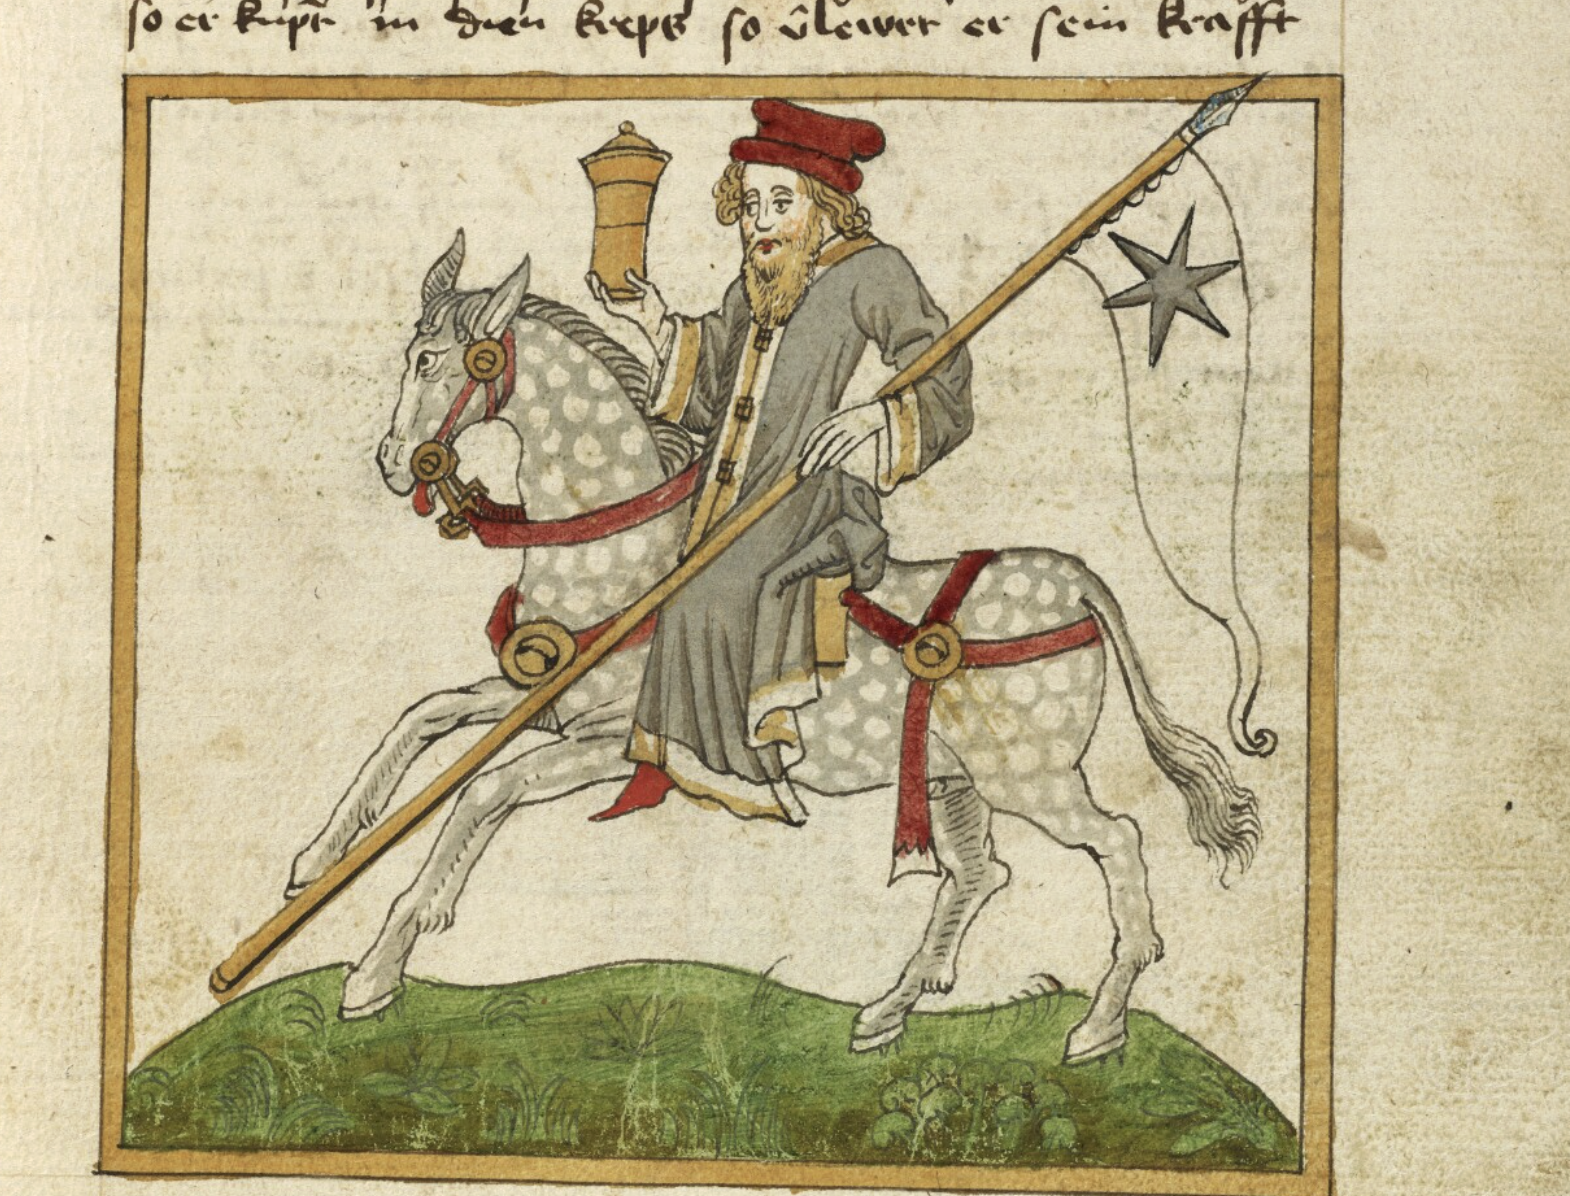 so er kupt in dien kreps so v̂lewrt er sein krafft